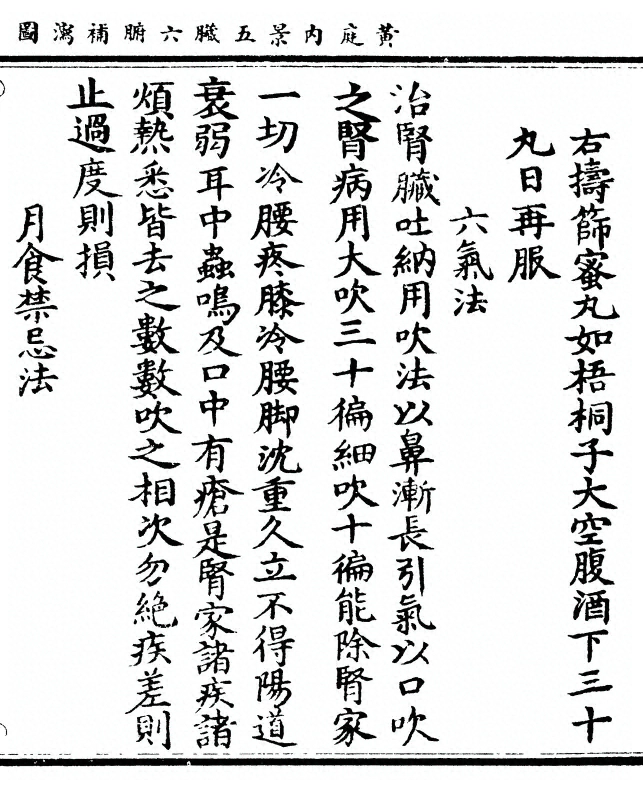 黃庭內景五臟六腑補瀉圖
右擣篩蜜丸如梧桐子大空腹酒下三十
丸日再服
六氣法
治腎臟吐納用吹法以鼻漸長引氣以口吹
之腎病用大吹三十徧細吹十徧能除腎家
一切冷腰疼膝冷腰脚沈重久立不得陽道
衰弱耳中蟲鳴及口中有瘡是腎家諸疾諸
煩熱悉皆去之數數吹之相次勿絕疾差則
止過度則損
月食禁忌法